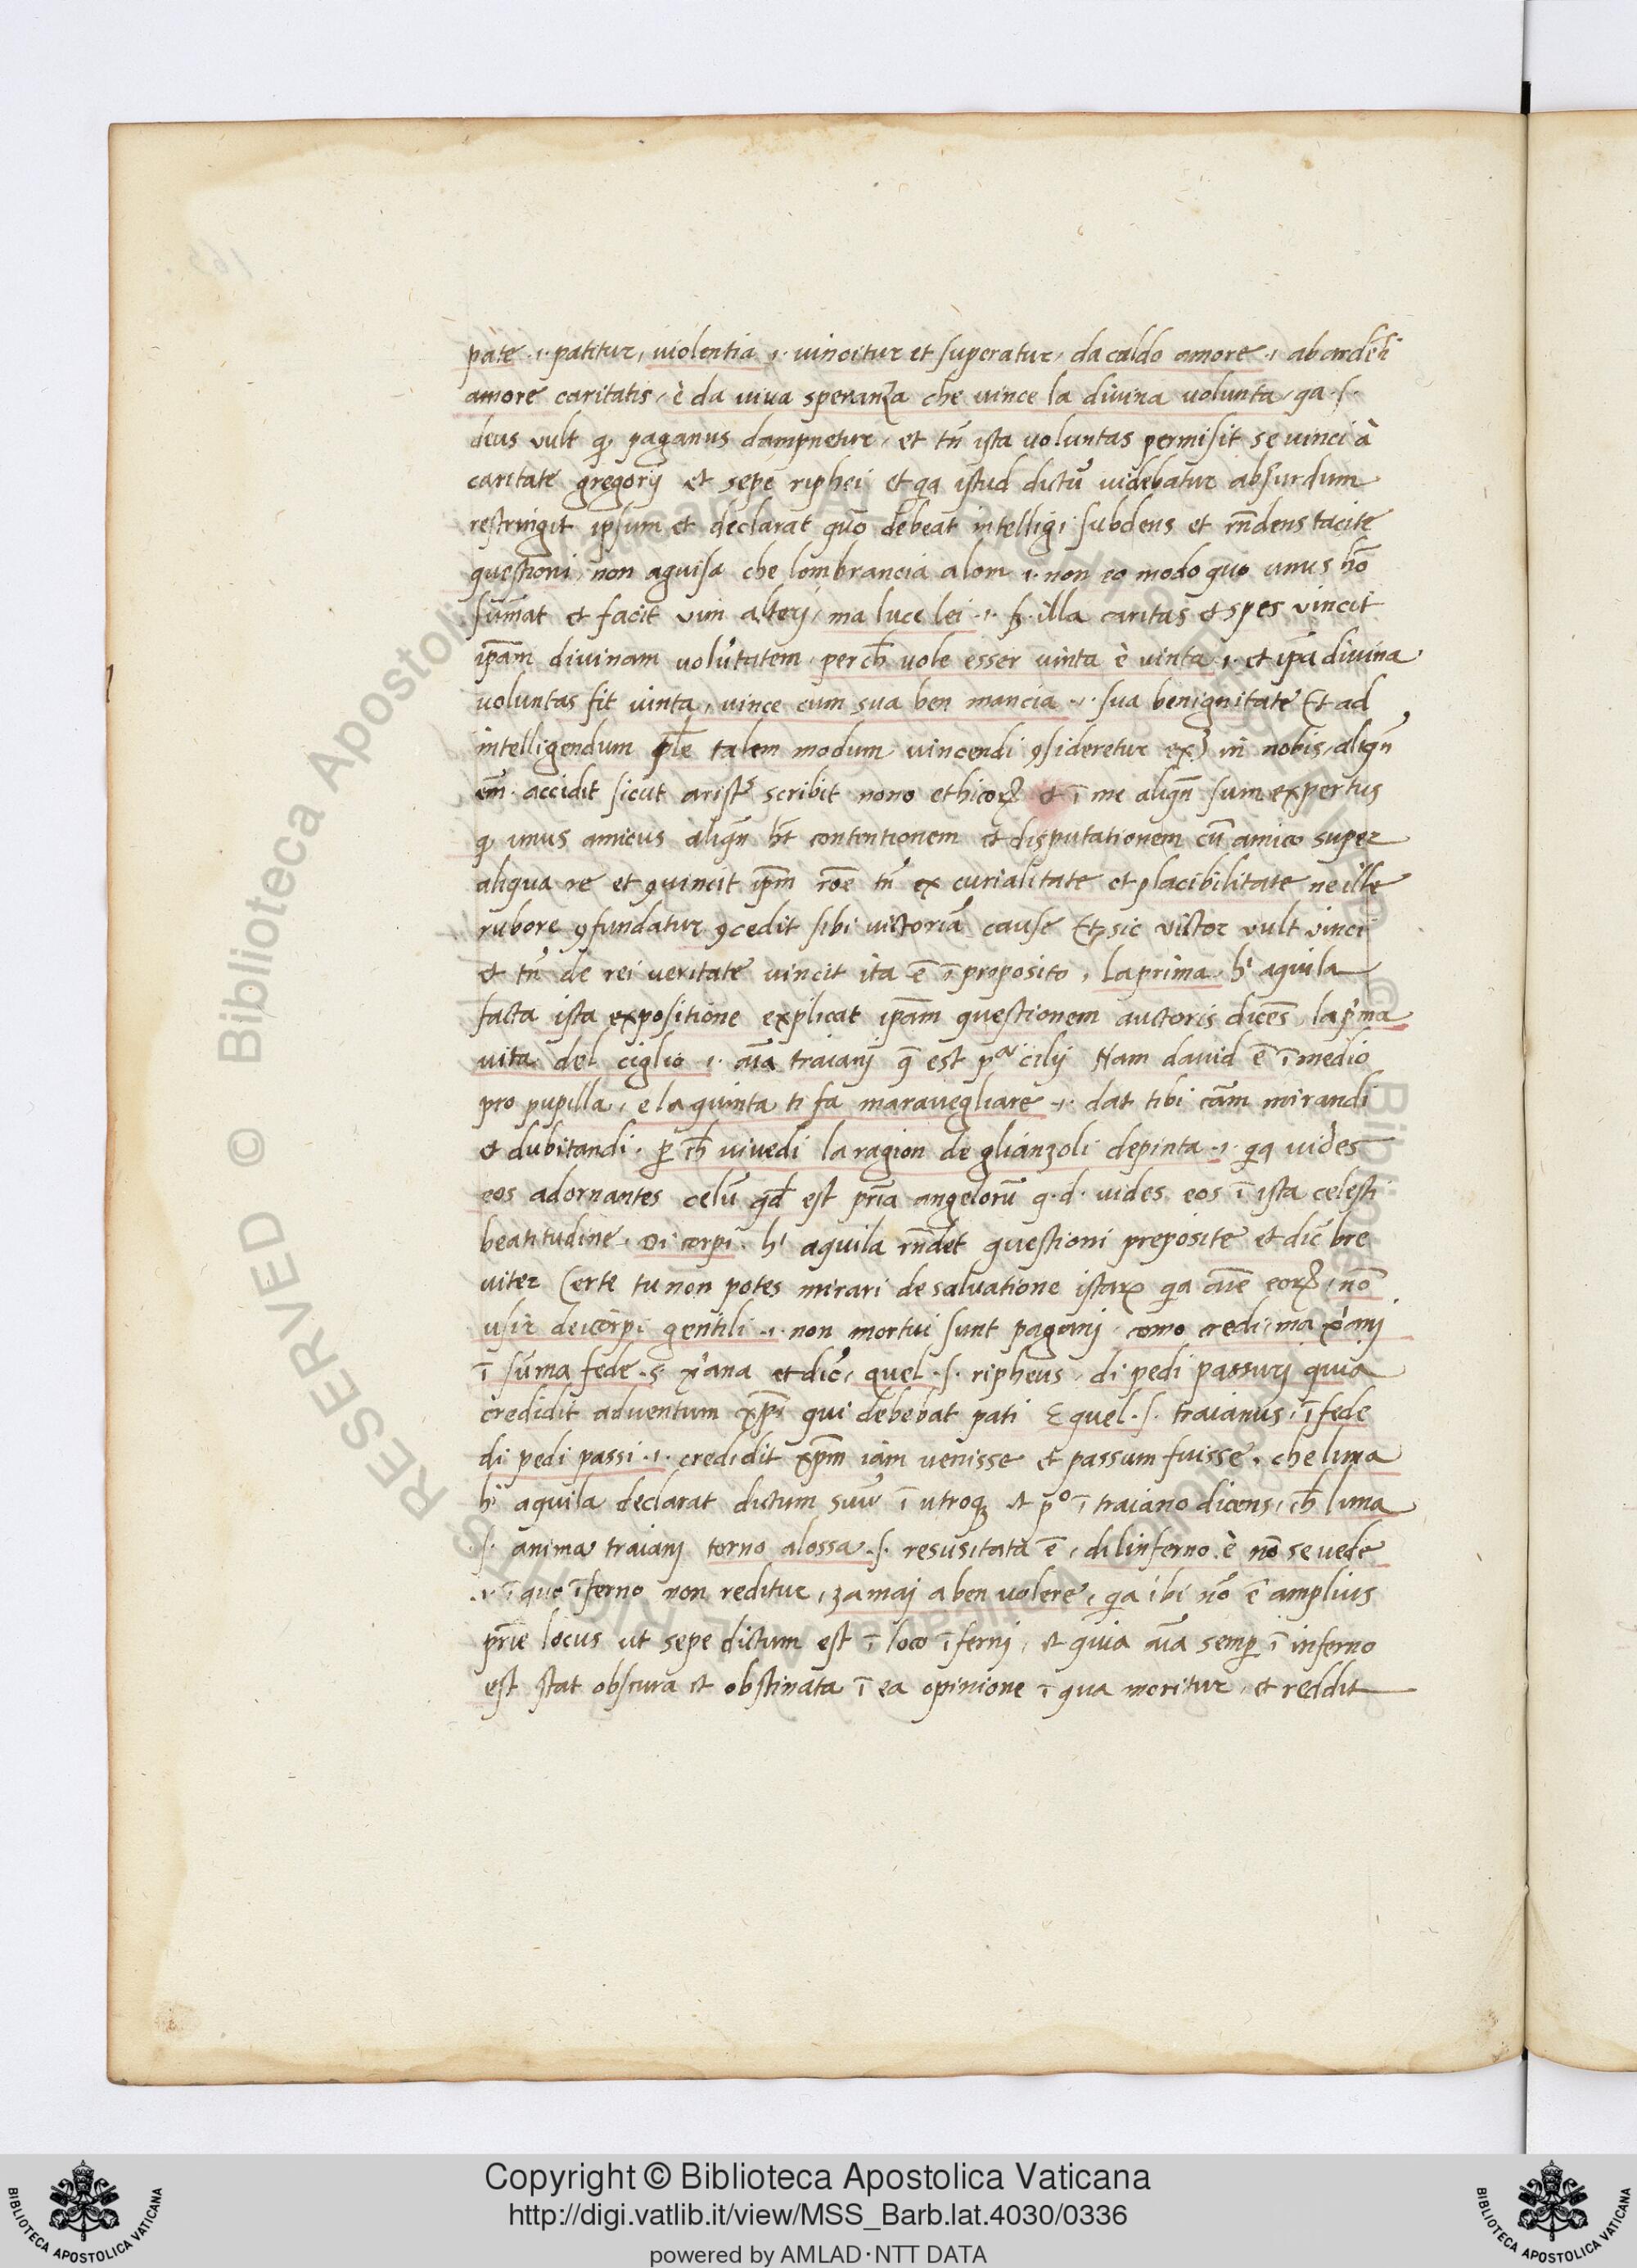 pate .i. patitur, violentia .i. vincitur et superatur, da caldo amore .i. ab ardēti
amore caritatis, è da viva speranza che vince la divina volunta, qa .s.
deus vult ꝙ paganus dampnetur, et tn̄ ista voluntas permisit se vinci à
caritate gregorij et sepe riphei et qa istud dictū videbatur absurdum
restringit ipsum et declarat quō debeat intelligi subdens et rn̄dens tacite
questioni, non aguisa che lombrancia alom .i. non eo modo quo unus hō
sum̄at et facit vim alterj, ma luce lei .i. illa caritas et spes vincit
ip̄am divinam volūtatem, perch̄ vole esser vinta è vinta .i. et ip̄a divina
voluntas fit vinta, vince cum sua ben mancia .i. sua benignitate Et ad
intelligendum talem modum vincendi ꝯsideretur in nobis, aliqn̄
em̄ accidit sicut arist. scribit nono ethicoꝝ et ī me aliqn̄ sum expertus
ꝙ unus amicus aliqn̄ ht̄ contentionem et disputationem cū amico super
aliqua re et ꝯvincit ip̄m rōe tn̄ ex curialitate et placibilitate ne ille
rubore ꝯfundatur ꝯcedit sibi victoriā cause Et sic victor vult vinci
et tn̄ de rei veritate vincit ita ē ī proposito, la prima, hͥ aquila
facta ista expositione explicat ip̄am questionem auctoris dicēs, la pͥma
vita del ciglio .i. aīa traianj q̄ est pᵃ cilij Nam david ē ī medio
pro pupilla, e la quinta ti fa maravegliare .i. dat tibi cām mirandi
et dubitandi, ꝑ ch̄ vivedi la ragion de glianzoli depinta .i. qa vides
eos adornantes celū qd̄ est pr̄ia angelorū q.d. vides eos ī ista celesti
beatitudine, Di corpi, hͥ aquila rn̄det questioni preposite et dic̄ bre
viter Certe tu non potes mirari de salvatione istarꝝ qa aīe eorꝝ, nō
usir dei corpi gentili .i. non mortui sunt paganj, como credi, ma xͥanj
ī suma fede .s. xͥana et dic̄, quel .s. ripheus, di pedi passurj quia
credidit adventum xp̄i qui debebat pati E quel .s. traianus, ī fede
di pedi passi .i. credidit xp̄m iam venisse et passum fuisse, che luna
hͥ aquila declarat dictum suū ī utroqꝫ et pͦ ī traiano dicens, ch̄ luna
.s. anima traianj torno alossa .s. resusitata ē, dilinferno è nō se vede
.i. ī quo īferno non reditur, zamaj a ben volere, qa ibi nō ē amplius
pn̄ie locus ut sepe dictum est ī loco īfernj, et quia aīa semp̄ ī inferno
est stat obscura et obstinata ī ea opinione ī qua moritur, et reddit
Copyright © Biblioteca Apostolica Vaticana
http://digi.vatlib.it/view/MSS_Barb.lat.4030/0336
powered by AMLAD·NTT DATA
BIBLIOTECA APOSTOLICA VATICANA
BIBLIOTECA APOSTOLICA VATICANA